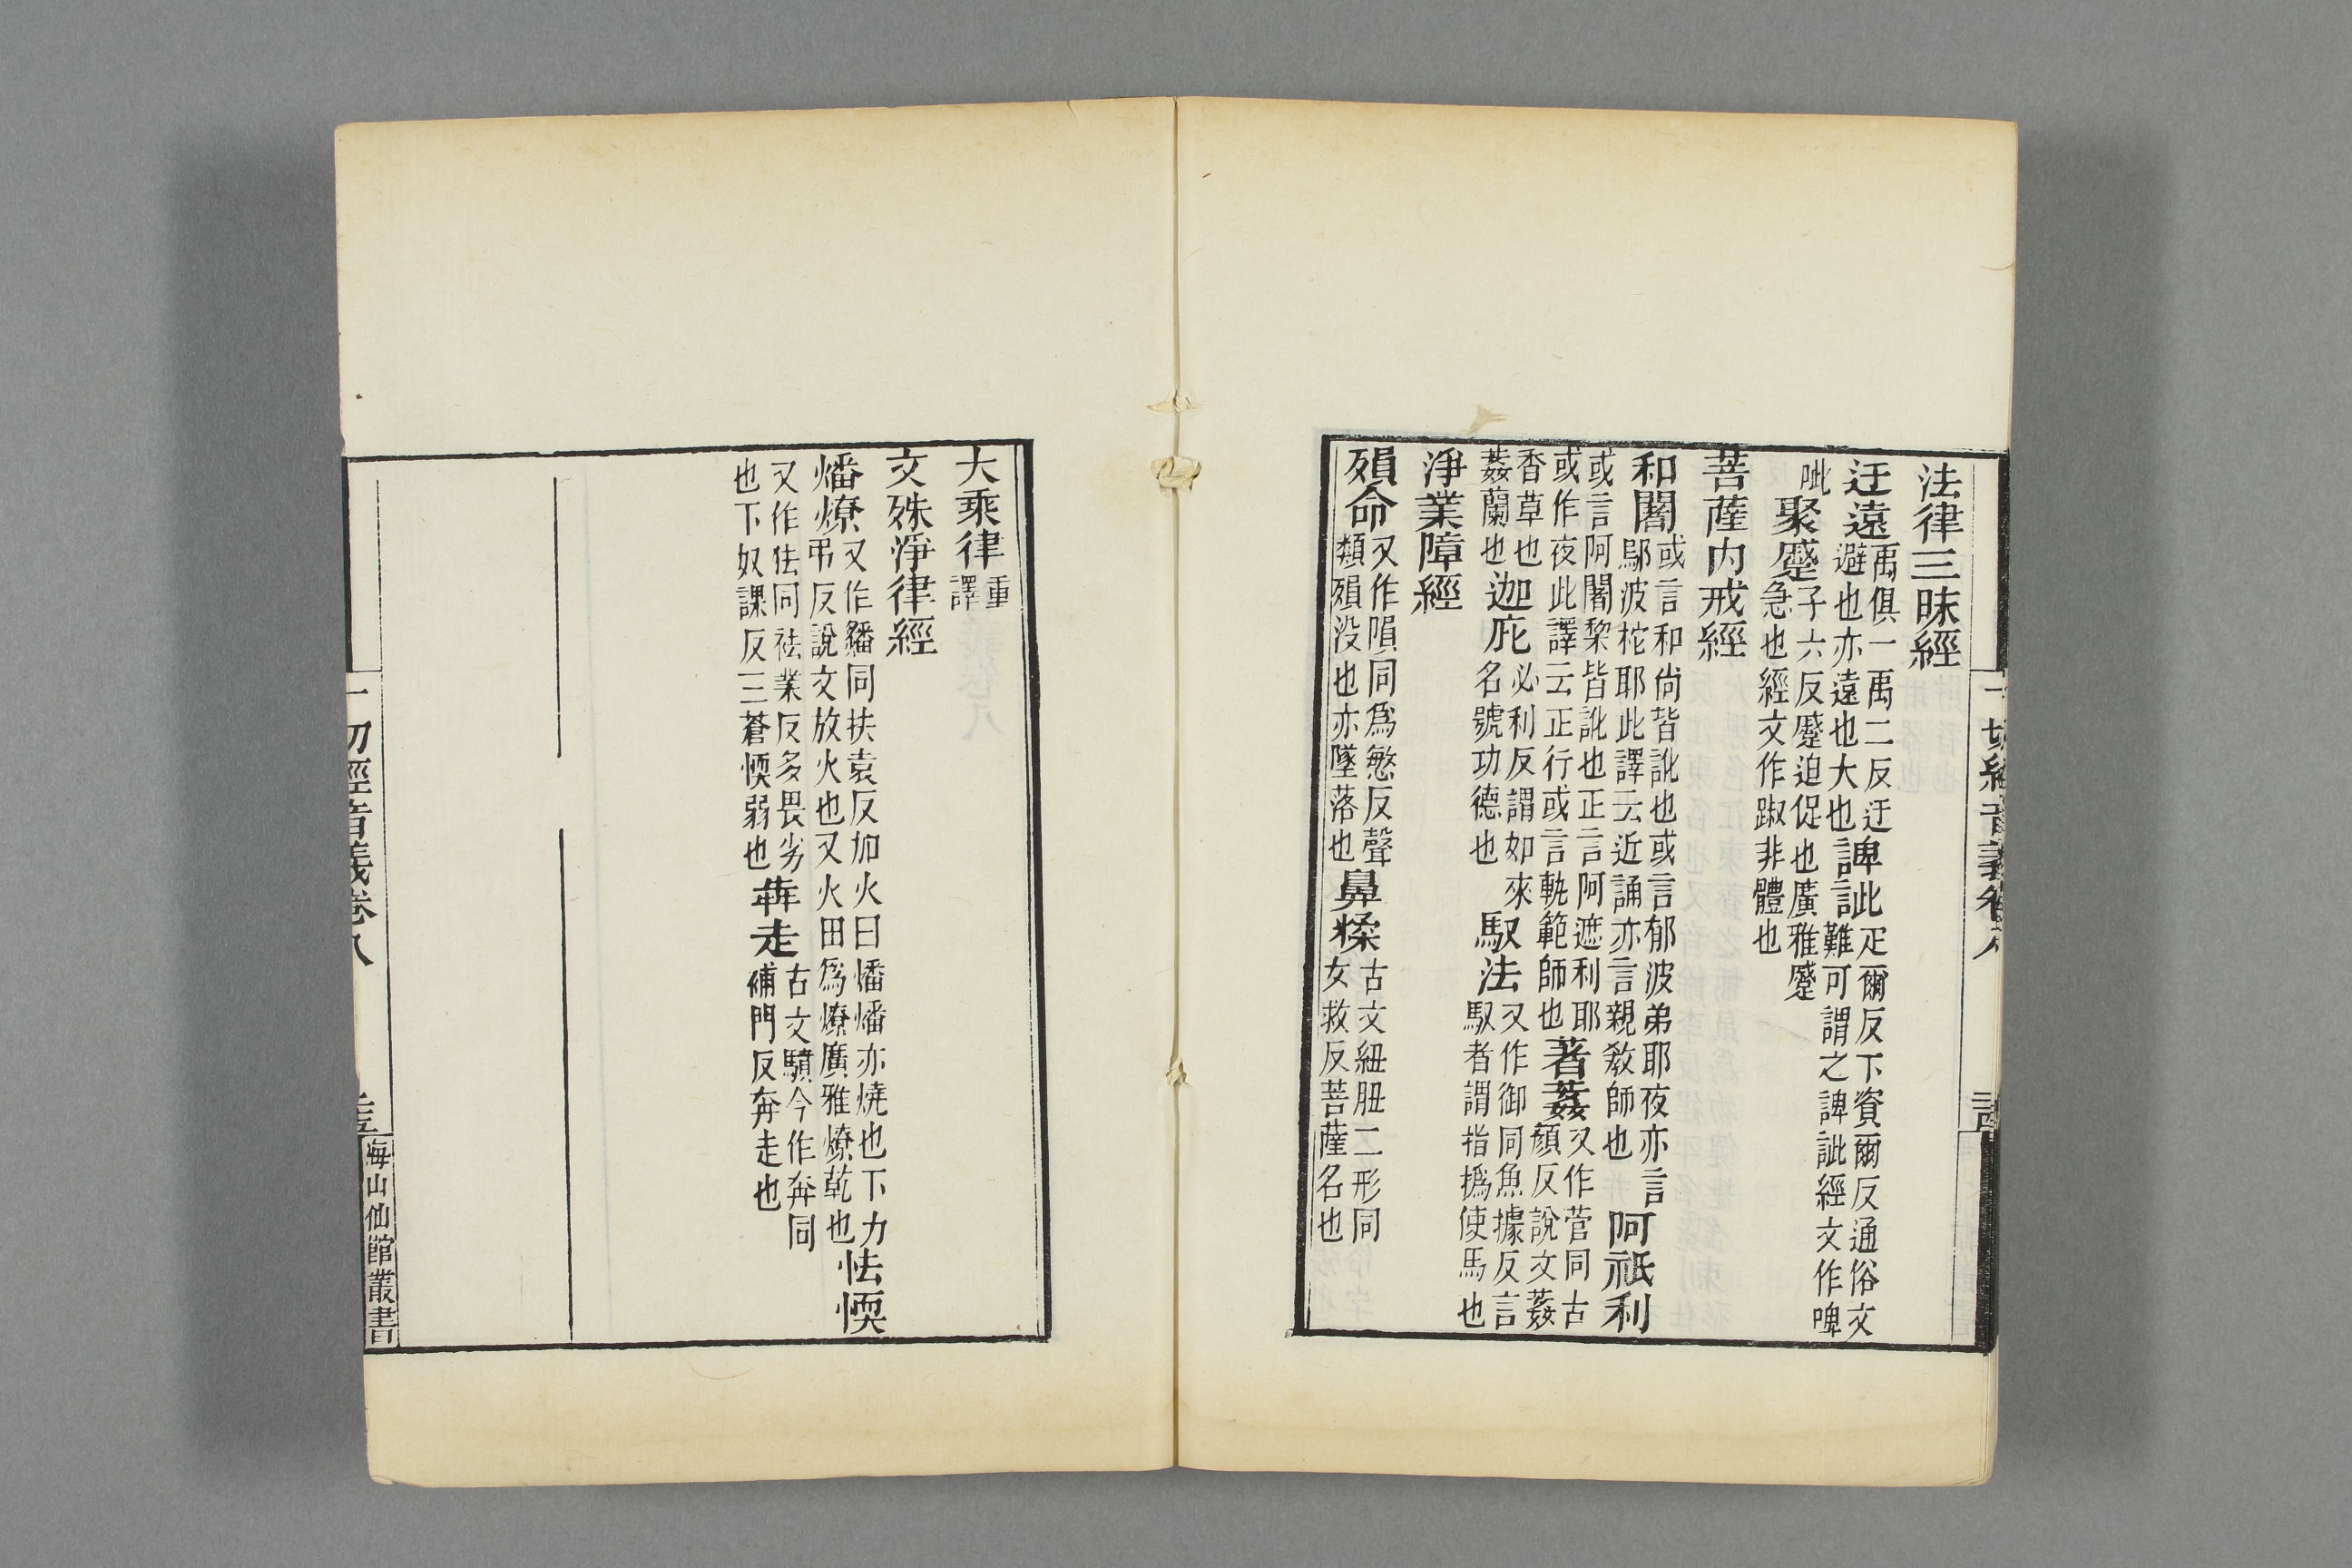 法律三昧經
迂遠禹俱一禹二反迂避也亦遠也大也諀訿疋爾反下資爾反通俗文難可謂之諀訿經文作啤
呲聚蹙子六反蹙迫促也廣雅蹙急也經文作踧非體也
菩薩内戒經
和闍或言和尙皆訛也或言郁波弟耶夜亦言鄔波柁耶此譯云近誦亦言親敎師也阿祇利
或言阿闍棃皆訛也正言阿遮利耶或作夜此譯云正行或言軌範師也著葌又作菅同古顔反說文葌
香草也葌蘭也迦庇必利反謂如來名號功德也馭法又作御同魚據反言馭者謂指撝使馬也
淨業障經
殞命又作隕同爲愍反聲類殞没也亦墜落也鼻煣古文紐䏔二形同女救反菩薩名也
一切經音義卷八
大乘律重譯
文殊淨律經
燔燎又作䊩同扶袁反加火曰燔燔亦燒也下力弔反說文放火也又火田爲燎廣雅燎乾也怯愞
又作㹤同袪業反多畏劣也下奴課反三蒼愞弱也犇走古文驞今作奔同補門反奔走也
一切經音義卷八
海山仙館叢書